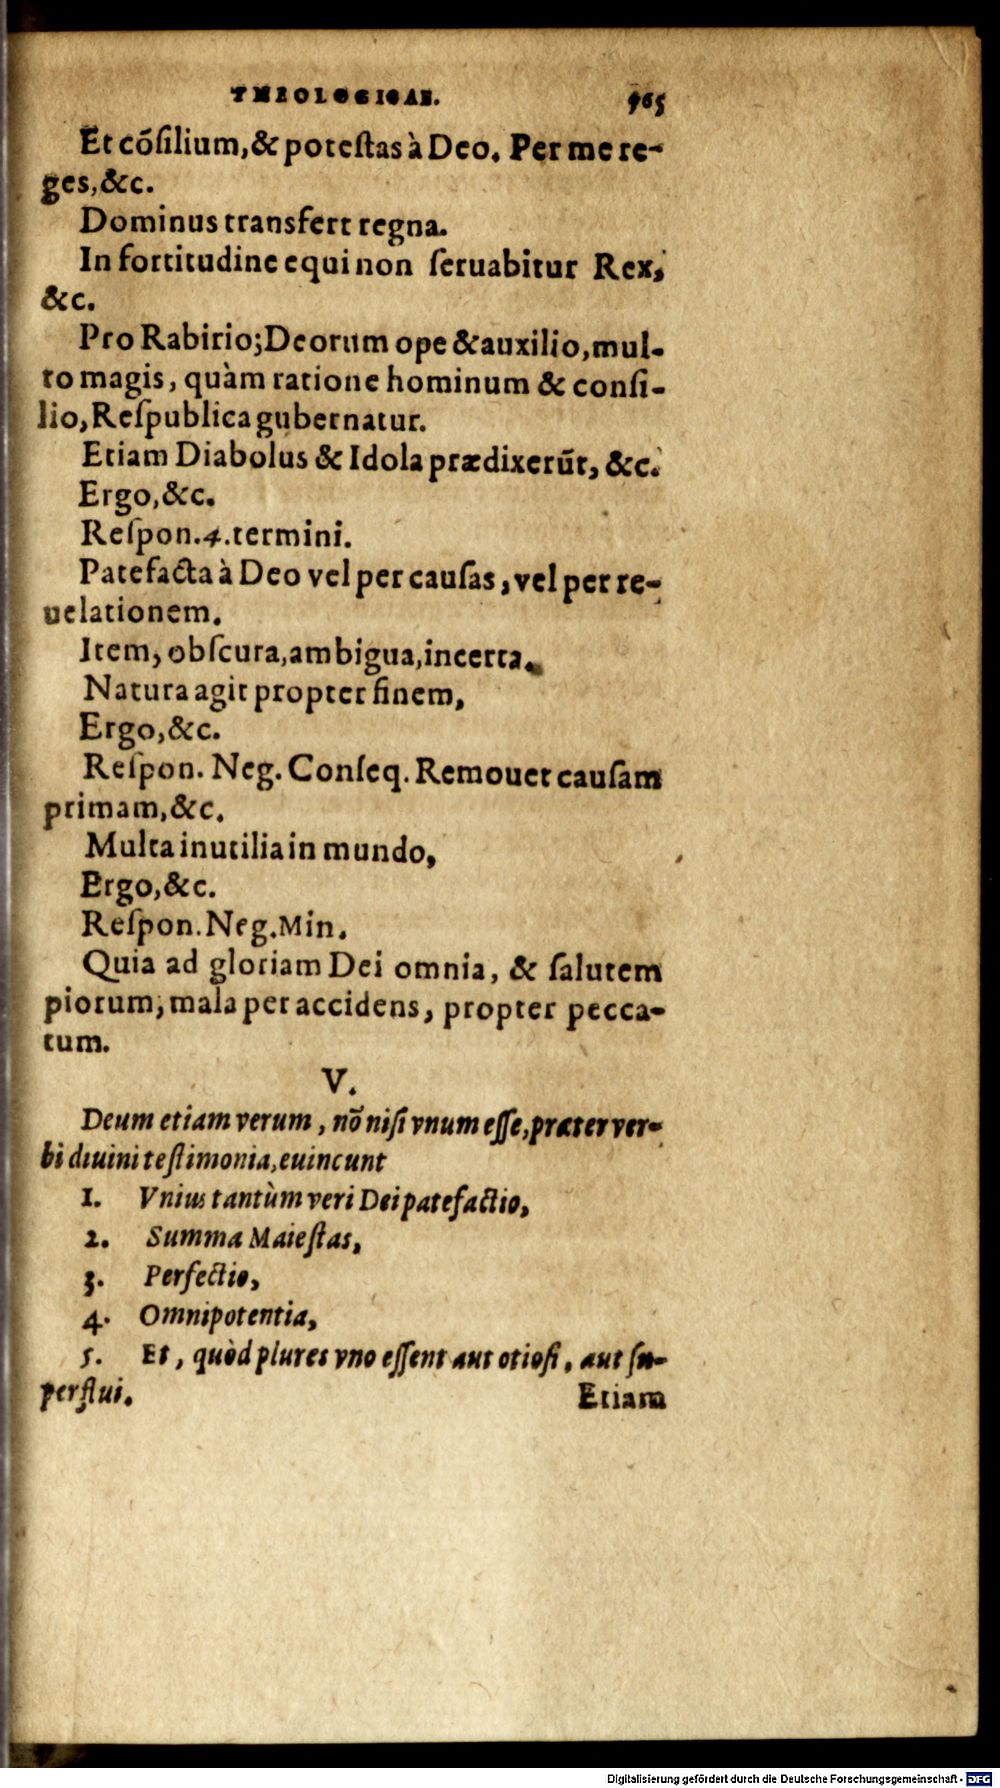 THEOLOGICAE. 965
Et cõſilium, & poteſtas à Deo. Per me re-
ges, &c.
Dominus transfert regna.
In fortitudine equi non ſeruabitur Rex,
&c.
Pro Rabirio; Deorum ope & auxilio, mul-
to magis, quàm ratione hominum & conſi-
lio, Reſpublica gubernatur.
Etiam Diabolus & Idola prædixerũt, &c.
Ergo, &c.
Reſpon. 4. termini.
Patefacta à Deo vel per cauſas, vel per re-
uelationem.
Item, obſcura, ambigua, incerta.
Natura agit propter finem,
Ergo, &c.
Reſpon. Neg. Conſeq. Remouet cauſam
primam, &c.
Multa inutilia in mundo,
Ergo, &c.
Reſpon. Neg. Min.
Quia ad gloriam Dei omnia, & ſalutem
piorum; mala per accidens, propter pecca-
tum.
V.
Deum etiam verum, nõ niſi vnum eſſe, præter ver-
bi diuini teſtimonia, euincunt
1. Vnius tantùm veri Dei patefactio,
2. Summa Maieſtas,
3. Perfectio,
4. Omnipotentia,
5. Et, quòd plures vno eſſent aut otioſi, aut ſu-
perflui.
Etiam
Digitalisierung gefördert durch die Deutsche Forschungsgemeinschaft - DFG